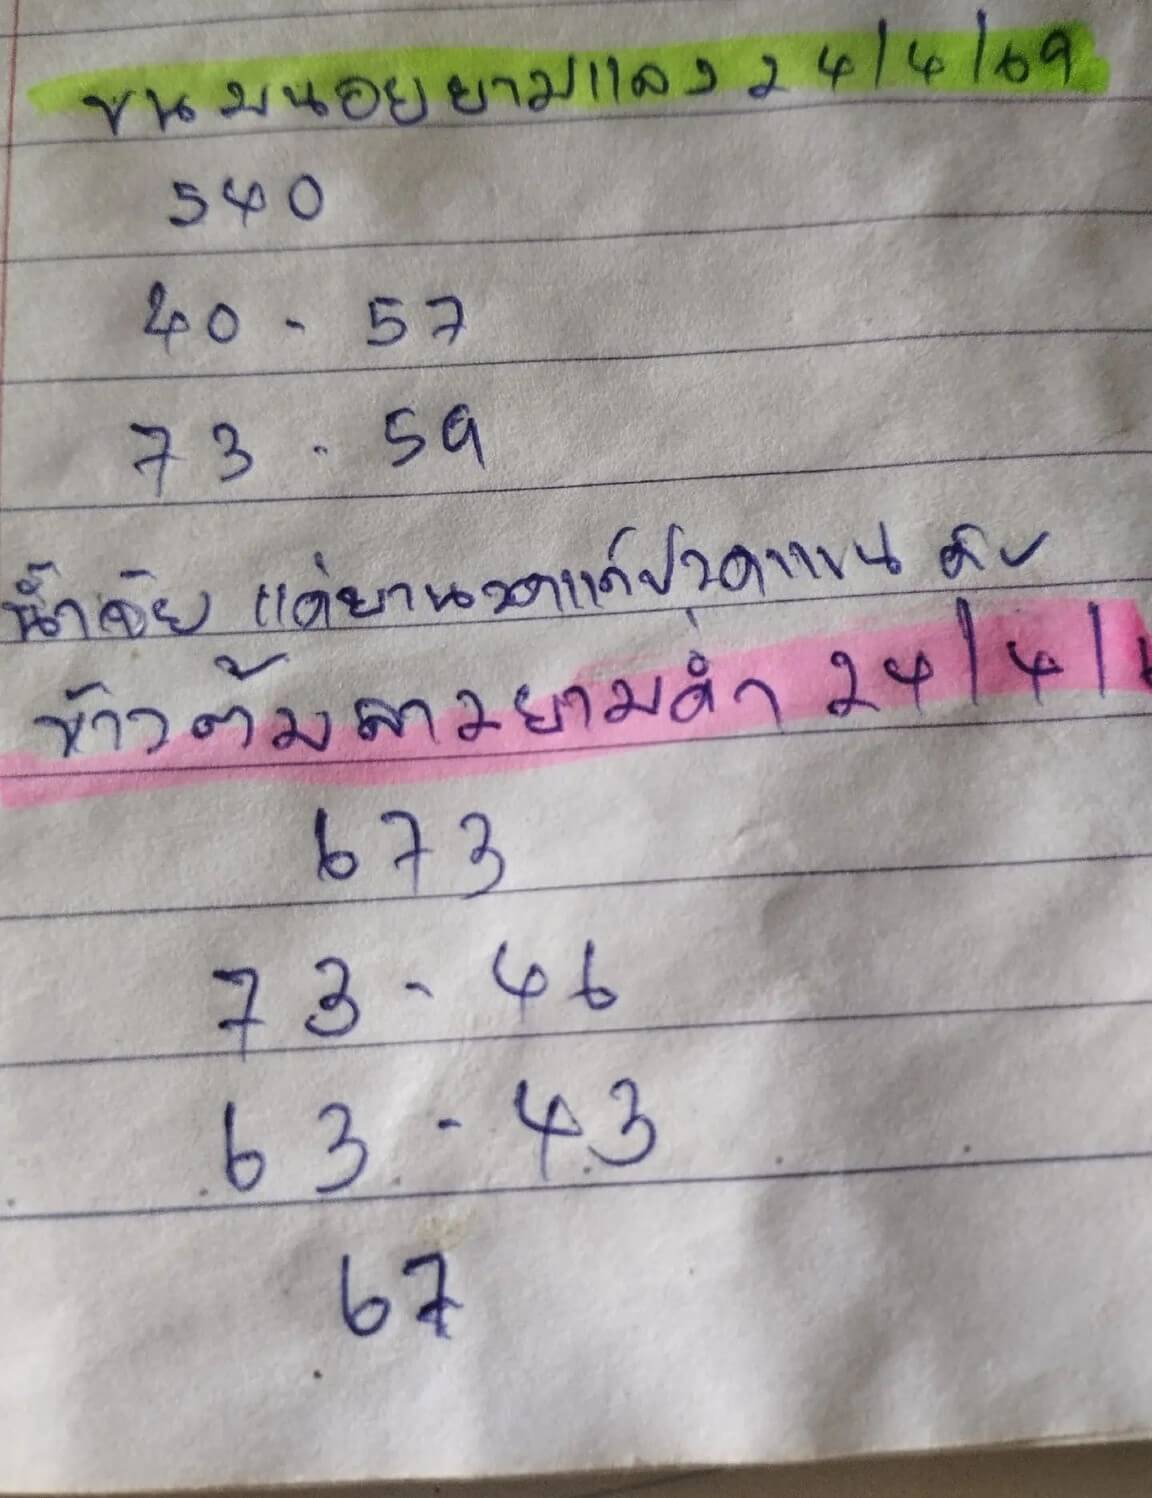 ขนมนอยยามแลง 24/4/69
540
40 - 57
73 - 59
น้ำจิ้ย แด่ยานวดแก้ปวดแขน
ข้าวต้มสาวยามค่ำ 24/4/6
673
73 - 46
63 - 43
67